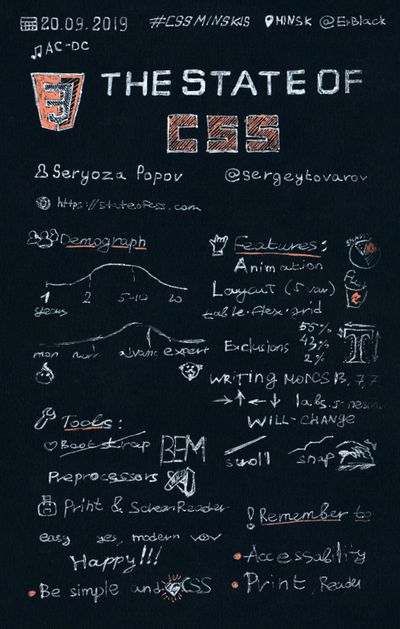 20.09.2019 #CSSMINSKJS MINSK @ErBlack
AC-DC
3
THE STATE OF
CSS
Seryoza Popov @sergeytovarov
https://stateofcss.com
Demograph
1 2 5-10 20
years
advanc expert
Features:
Animation
Layout (5 var)
table.flex.grid
Exclusions 55% 43% 2%
WRITING MODES
WILL-CHANGE
Tools:
Bootstrap BEM
scroll snap
Preprocessors
Print & ScreenReader
easy yes, modern
Happy!!!
Be simple and CSS
Remember to
Accessability
Print, Reader